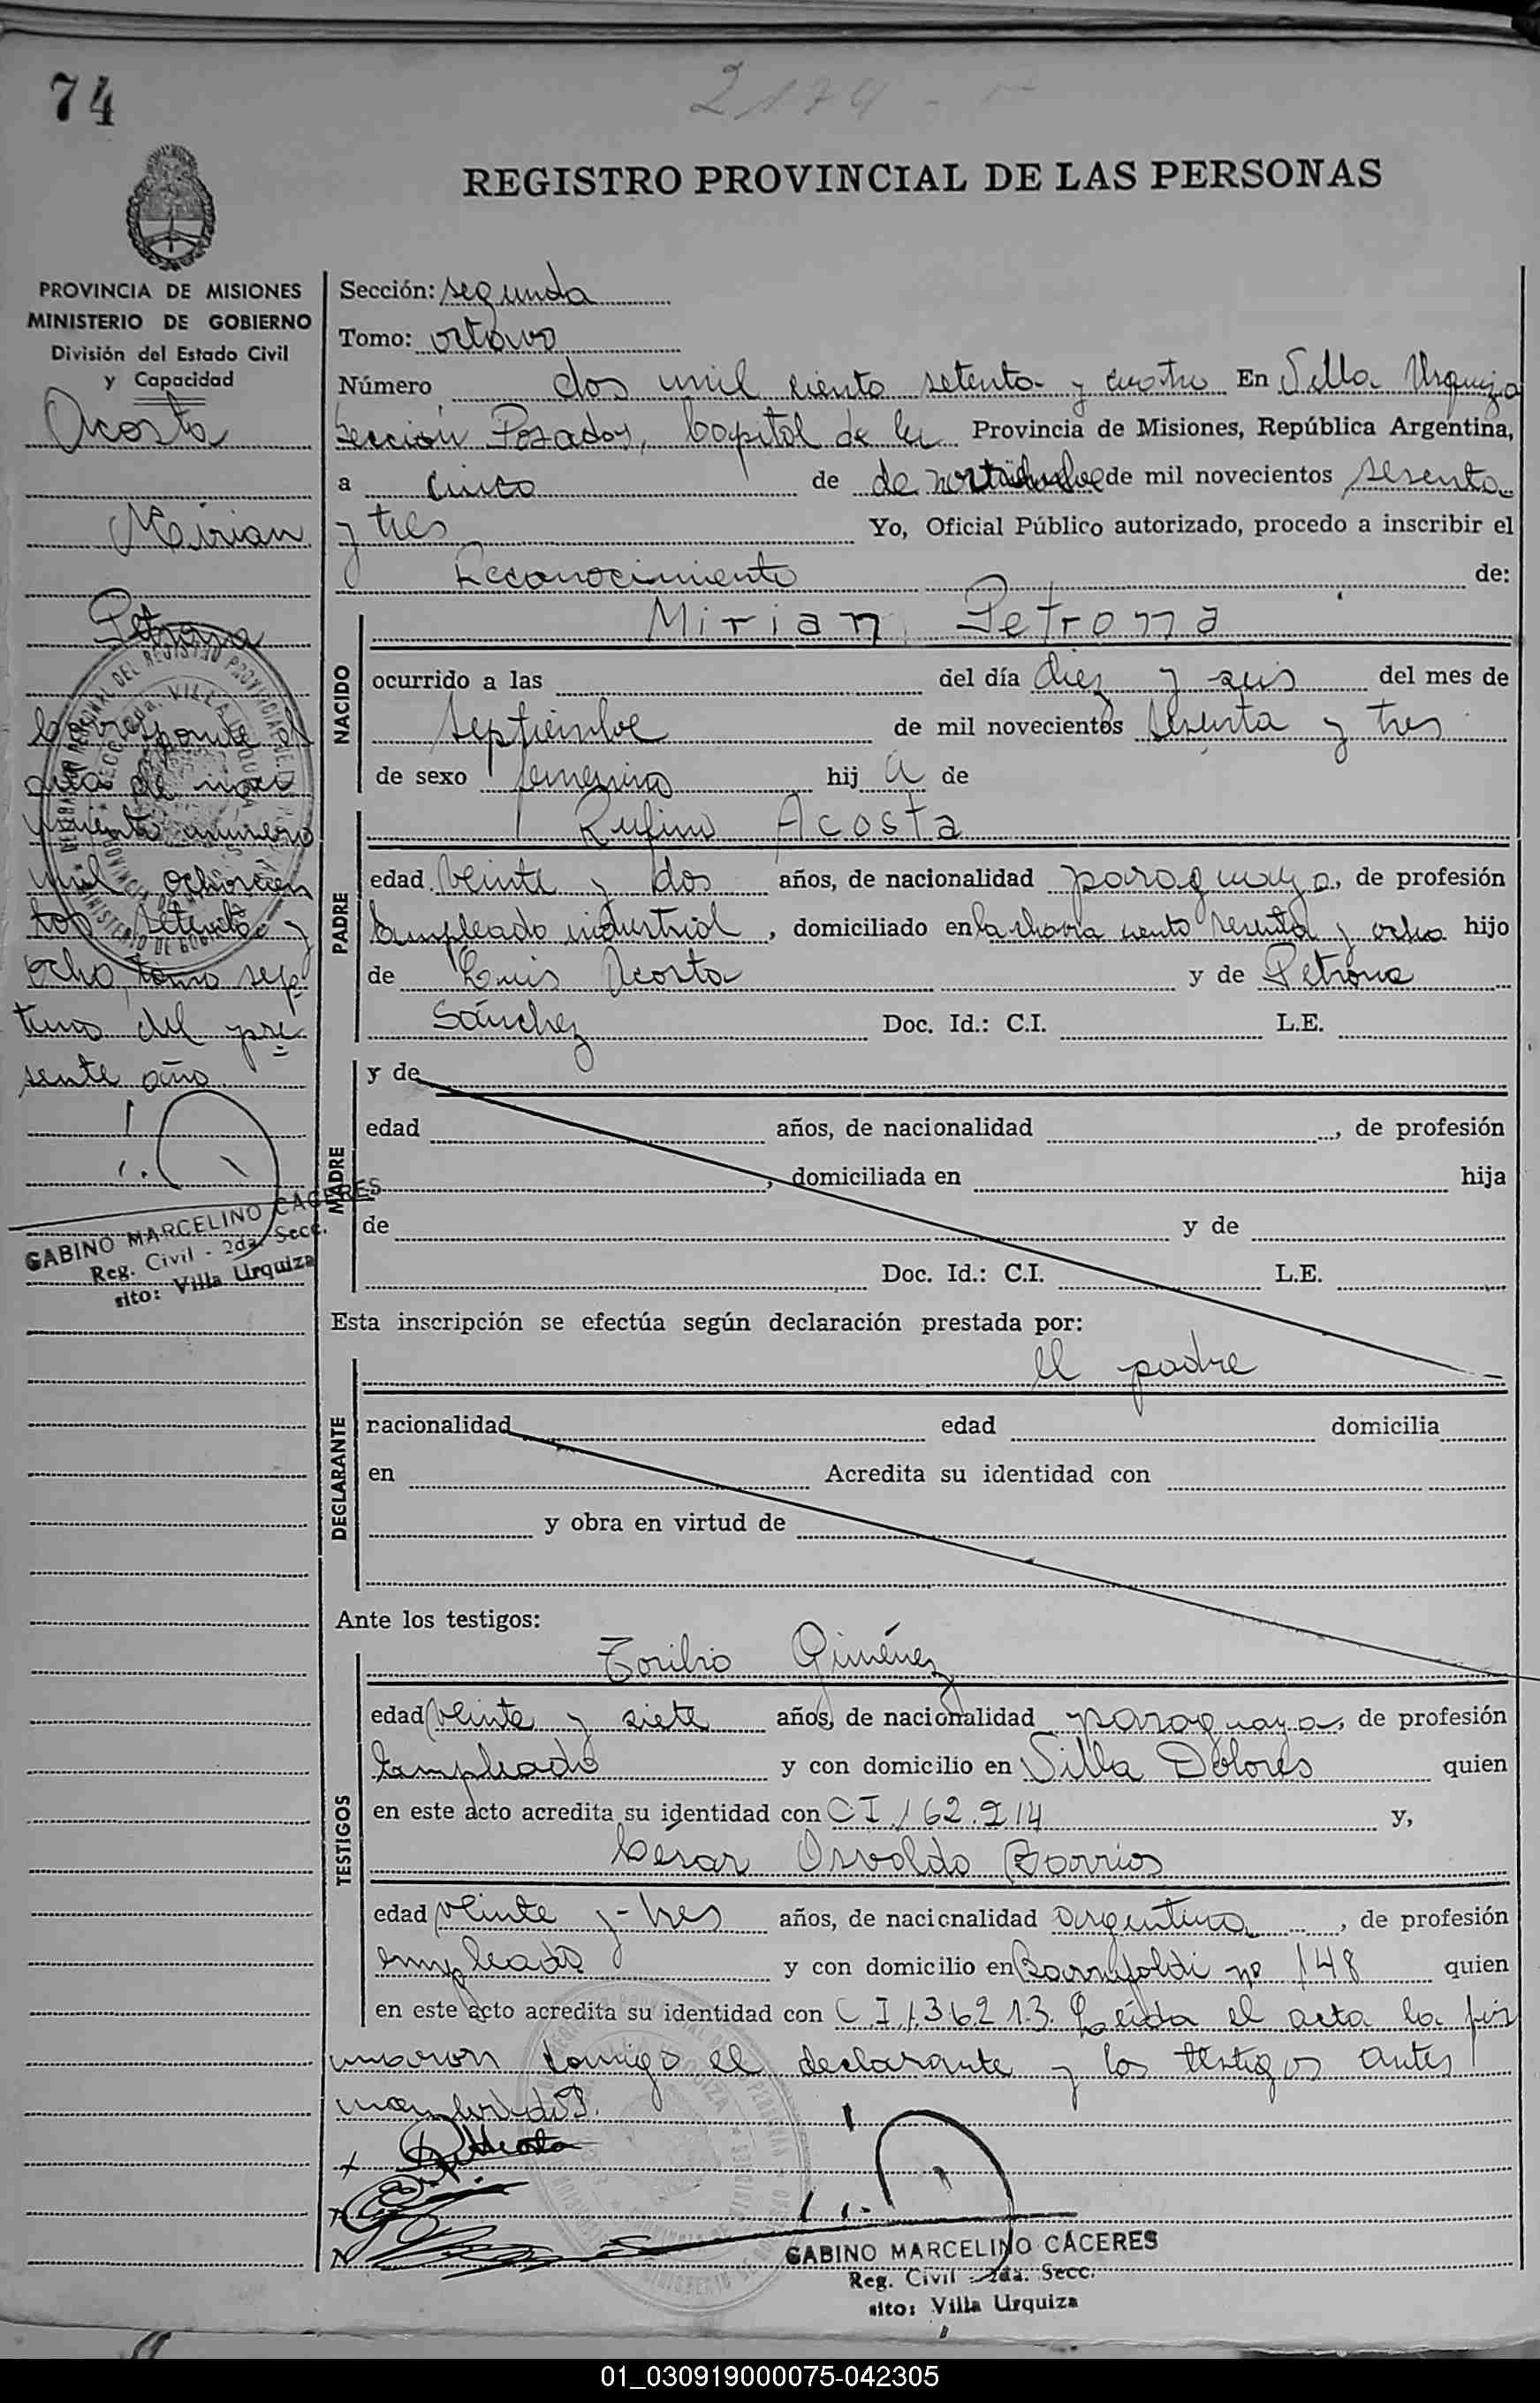 74
2174
REGISTRO PROVINCIAL DE LAS PERSONAS
PROVINCIA DE MISIONES
MINISTERIO DE GOBIERNO
División del Estado Civil
y Capacidad
Acosta
Mirian
Petrona
Corresponde al
acta de naci
miento número
mil ochocien
tos setenta y
ocho tomo sép
timo del pre
sente año
GABINO MARCELINO CACERES
Reg. Civil - 2da. Secc.
sito: Villa Urquiza
Sección: segunda
Tomo: octavo
Número dos mil ciento setenta y cuatro En Villa Urquiza
sección Posadas, Capital de la Provincia de Misiones, República Argentina,
a cinco de de mil novecientos sesenta
y tres Yo, Oficial Público autorizado, procedo a inscribir el
Reconocimiento de:
NACIDO
Mirian Petrona
ocurrido a las del día diez y seis del mes de
septiembre de mil novecientos sesenta y tres
de sexo femenino hij a de
PADRE
Rufino Acosta
edad veinte y dos años, de nacionalidad paraguaya, de profesión
Empleado industrial, domiciliado en la chacra ciento sesenta y ocho hijo
de Luis Acosta y de Petrona
Sánchez Doc. Id.: C.I. L.E.
MADRE
y de
edad años, de nacionalidad , de profesión
, domiciliada en hija
de y de
Doc. Id.: C.I. L.E.
Esta inscripción se efectúa según declaración prestada por:
el padre
DECLARANTE
racionalidad edad domicilia
en Acredita su identidad con
y obra en virtud de
Ante los testigos:
TESTIGOS
Toribio Giménez
edad veinte y siete años, de nacionalidad paraguaya, de profesión
Empleado y con domicilio en Villa Dolores quien
en este acto acredita su identidad con CI 162.214 y,
César Osvaldo Barrios
edad veinte y tres años, de nacionalidad argentina , de profesión
empleado y con domicilio en nº 148 quien
en este acto acredita su identidad con C.I 136213. Leída el acta la fir
maron conmigo el declarante y los testigos antes
GABINO MARCELINO CÁCERES
Reg. Civil - 2da. Secc.
sito: Villa Urquiza
01_030919000075-042305